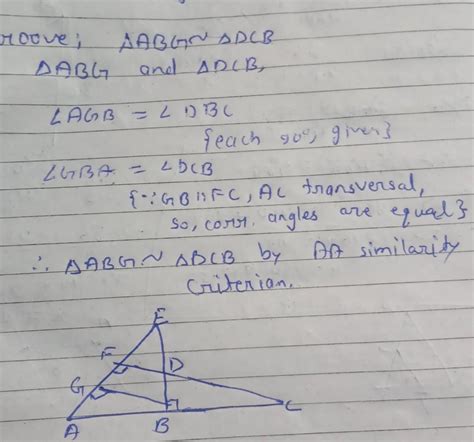 roove; ΔABG ~ ΔDCB
ΔABG and ΔDCB,
∠AGB = ∠DBC
{each 90°, given}
∠GBA = ∠DCB
{∵ GB ॥ FC, AC transversal,
so, corr. angles are equal}
∴ ΔABG ~ ΔDCB by AA similarity
Criterian.
E
F
D
G
A
B
C